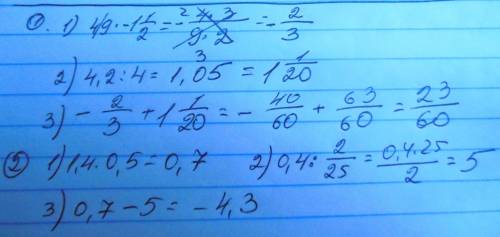 ①. 1) 4/9 · -1 1/2 = - 4·3/9·2 = - 2/3
2) 4,2 : 4 = 1,05 = 1 1/20
3) - 2/3 + 1 1/20 = - 40/60 + 63/60 = 23/60
⑤ 1) 1,4 · 0,5 = 0,7 2) 0,4 : 2/25 = 0,4·25/2 = 5
3) 0,7 - 5 = - 4,3